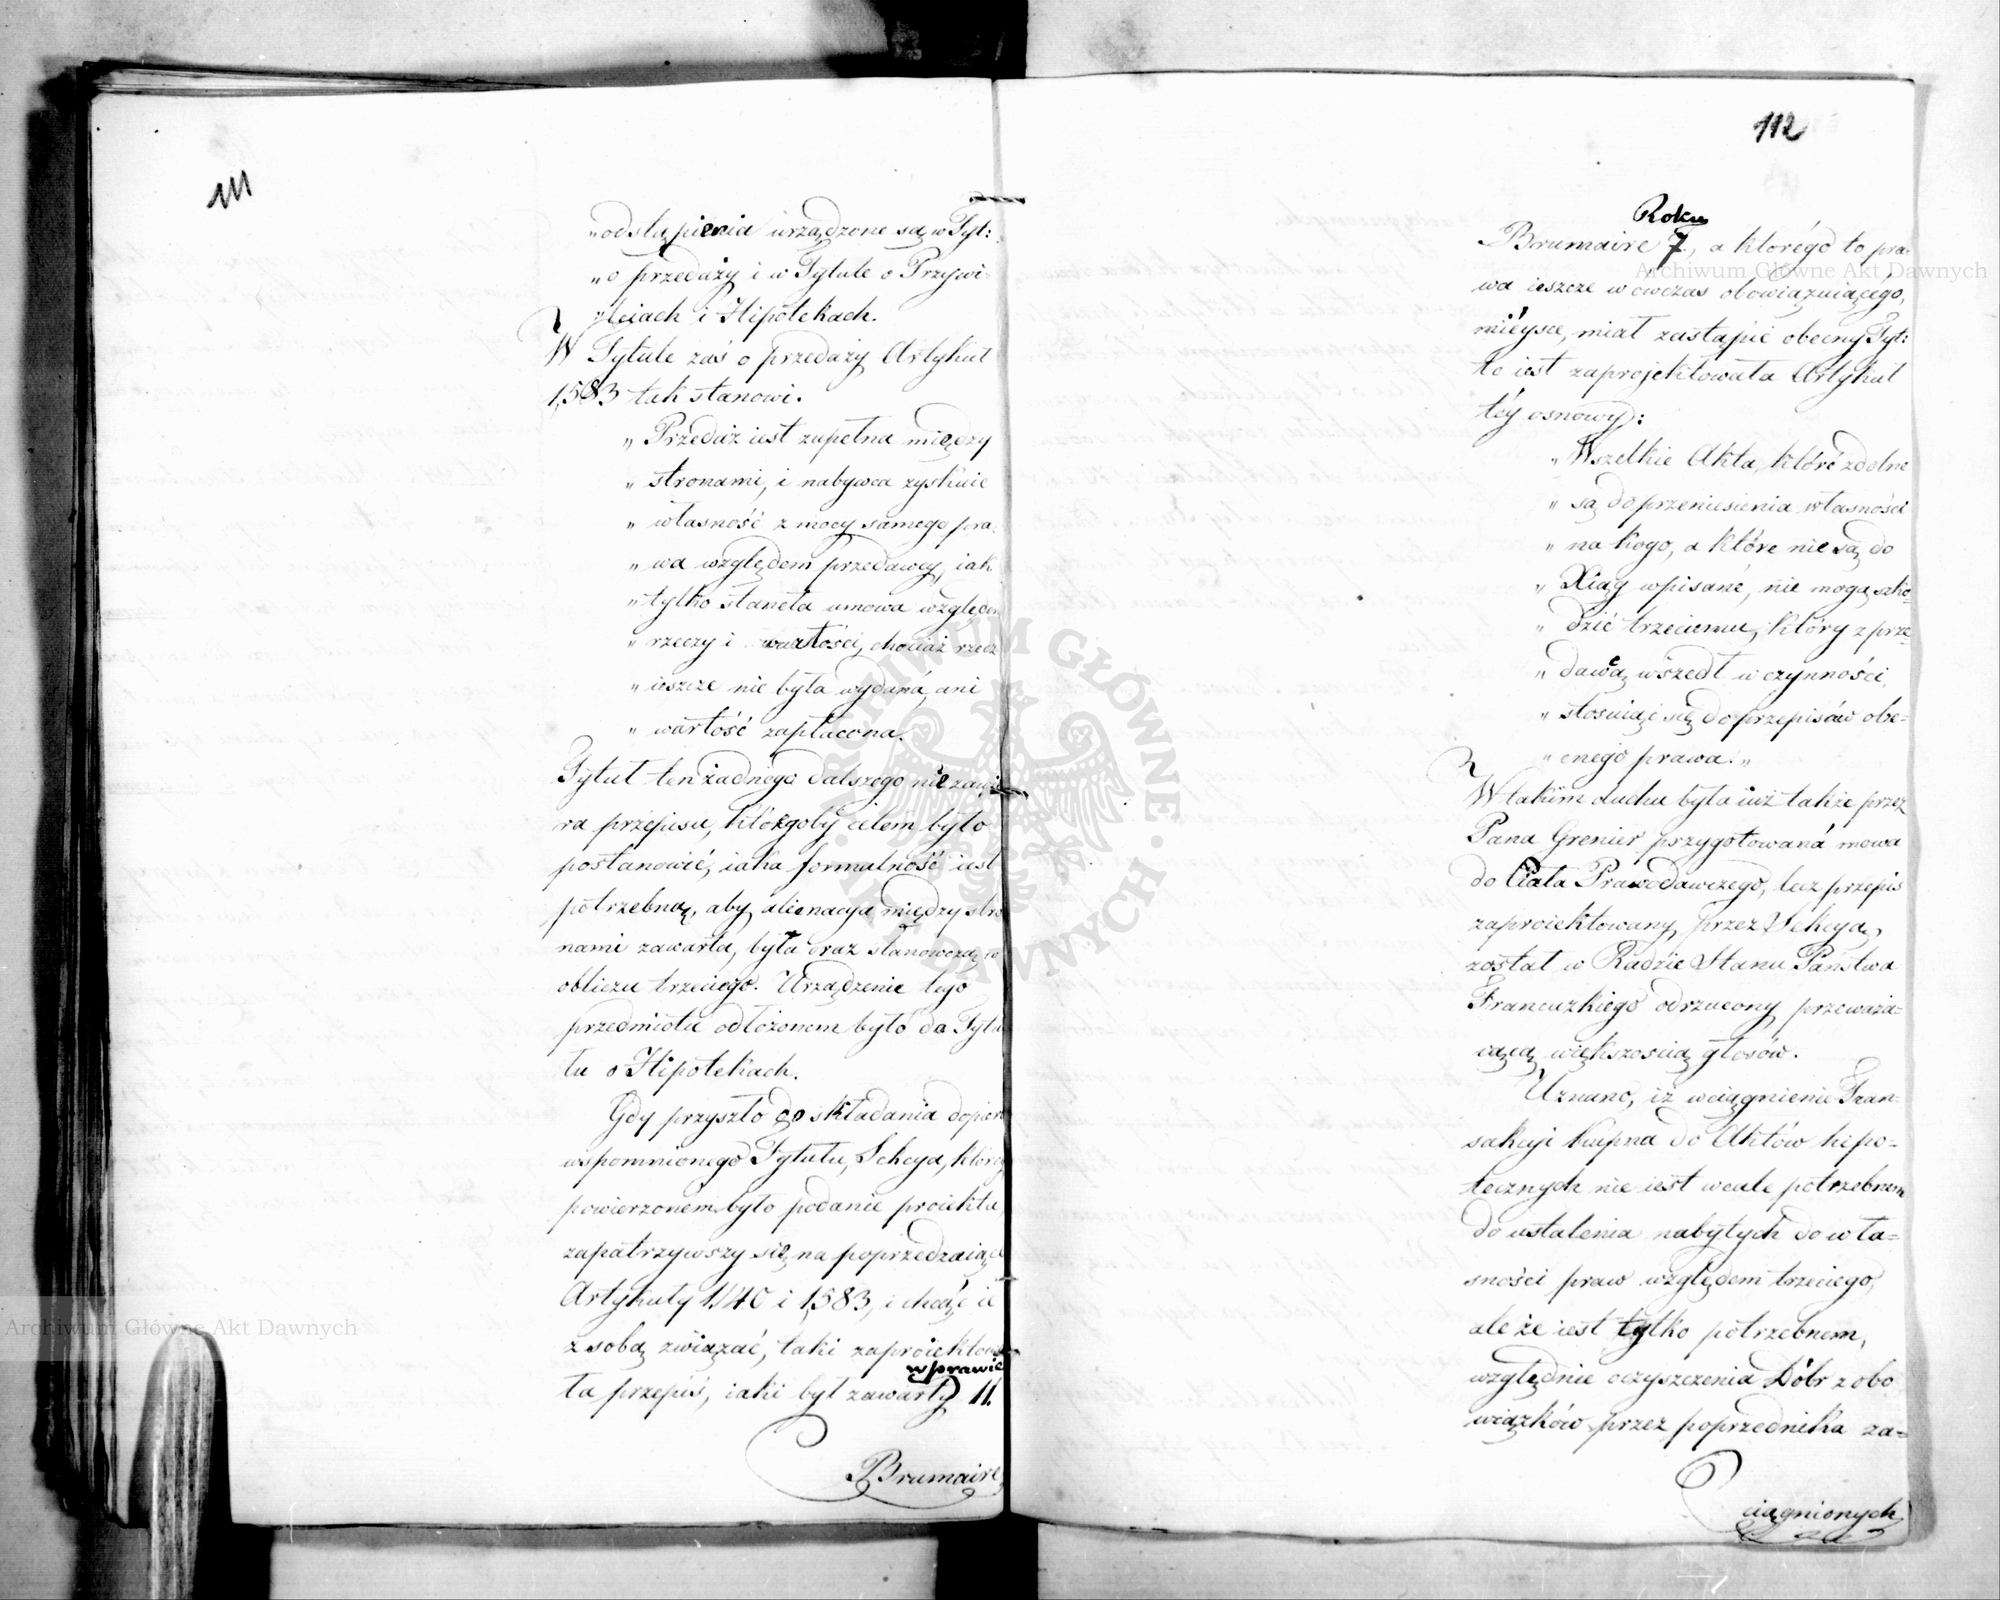 111
„odstąpienia urządzone są w Tyt:
„o przedaży i w Tytule o Przywi-
„leiach i Hipotekach.
W Tytule zaś o przedaży Artykuł
1,583 tak stanowi.
„ Przedaż iest zupełna między
„ stronami, i nabywca zyskuie
„ własność z mocy samego pra-
„ wa względem przedawcy, iak
„ tylko stanęła umowa względem
„ rzeczy i wartości, chociaż rzecz
„ ieszcze nie była wydaná, ani
„ wartość zapłacona.
Tytuł ten żadnego dalszego nie zawie-
ra przepisu, którego by celem było
postanowić, iaka formalność iest
potrzebną, aby alienacya między stro-
nami zawarta, była oraz stanowczą w
obliczu trzeciego. Urządzenie tego
przedmiotu odłożonem było do Tytu-
łu o Hipotekach.
Gdy przyszło do składania dopiero
wspomnionego Tytułu, Sekcya, któréy
powierzonem było podanie proiektu,
zapatrzywszy się na poprzedzaiące
Artykuły 1140 i 1,583, i chcąc ie
z sobą związać, taki zaproiektowa-
ła przepis, iaki był zawarty w prawie 11.
Brumaire,
112
Brumaire Roku 7, a którégo to pra-
wa ieszcze wówczas obowiązuiącégo,
mieysce, miał zastąpić obecny Tyt:
to iest zaprojektowała Artykuł
téy osnowy:
„ Wszelkie Akta, któré zdolne
„ są do przeniesienia własności
„ na kogo, a które nie są do
„ Xiąg wpisane, nie mogą szko-
„ dzić trzeciemu, który z prze-
„ dawcą wszedł w czynności,
„ stosuiąc się do przepisów obe-
„ cnego prawa. „
W takim duchu była iuż także przez
Pana Grenier przygotowaná mowa
do Ciała Prawodawczego, lecz przepis
zaproiektowany przez Sekcyą,
został w Radzie Stanu Państwa
Francuzkiego odrzucony przeważa-
iącą większoscią głosów.
Uznano, iż wciągnienie Tran-
sakcji kupna do Aktów hipo-
tecznych nie iest wcale potrzebnem
do ustalenia nabytych do wła-
sności praw względem trzeciego,
ale że iest tylko potrzebnem,
względnie oczyszczenia Dóbr z obo-
wiązków przez poprzednika za-
ciągnionych